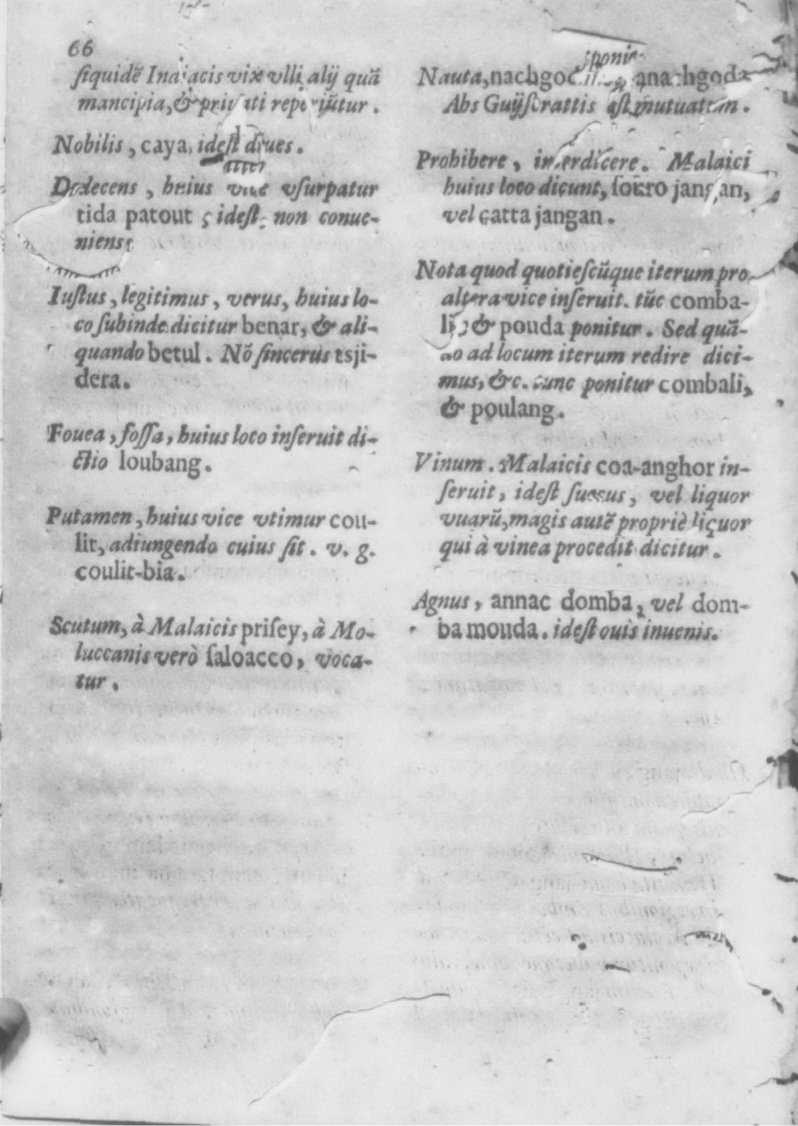 66
ſiquidē Indiacis vix vlli alij quā
mancipia, & priuati reperiūtur.
Nobilis, caya, ideſt diues.
Dedecens, huius vice vſurpatur
tida patout, ideſt, non conue-
niens.
Iuſtus, legitimus, verus, huius lo-
co ſubinde dicitur benar, & ali-
quando betul. Nō ſincerus tsji-
dera.
Fouea, foſſa, huius loco inſeruit di-
ctio loubang.
Putamen, huius vice vtimur cou-
lit, adiungendo cuius ſit. v. g.
coulit-bia.
Scutum, à Malaicis priſey, à Mo-
luccanis verò ſaloacco, voca-
tur.
Nauta, nachgoda, anachgoda
Abs Guijſarattis eſt mutuatum.
Prohibere, interdicere. Malaici
huius loco dicunt, ſocro jangan,
vel catta jangan.
Nota quod quotieſcūque iterum pro
altera vice inſeruit. tūc comba-
li, & pouda ponitur. Sed quā-
do ad locum iterum redire dici-
mus, &c. tunc ponitur combali,
& poulang.
Vinum. Malaicis coa-anghor in-
ſeruit, ideſt ſuccus, vel liquor
vuarū, magis autē propriè liquor
qui à vinea procedit dicitur.
Agnus, annac domba, vel dom-
ba mouda. ideſt ouis iuuenis.